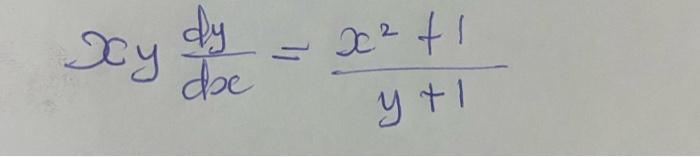 xy dy/dx = (x² + 1)/(y + 1)